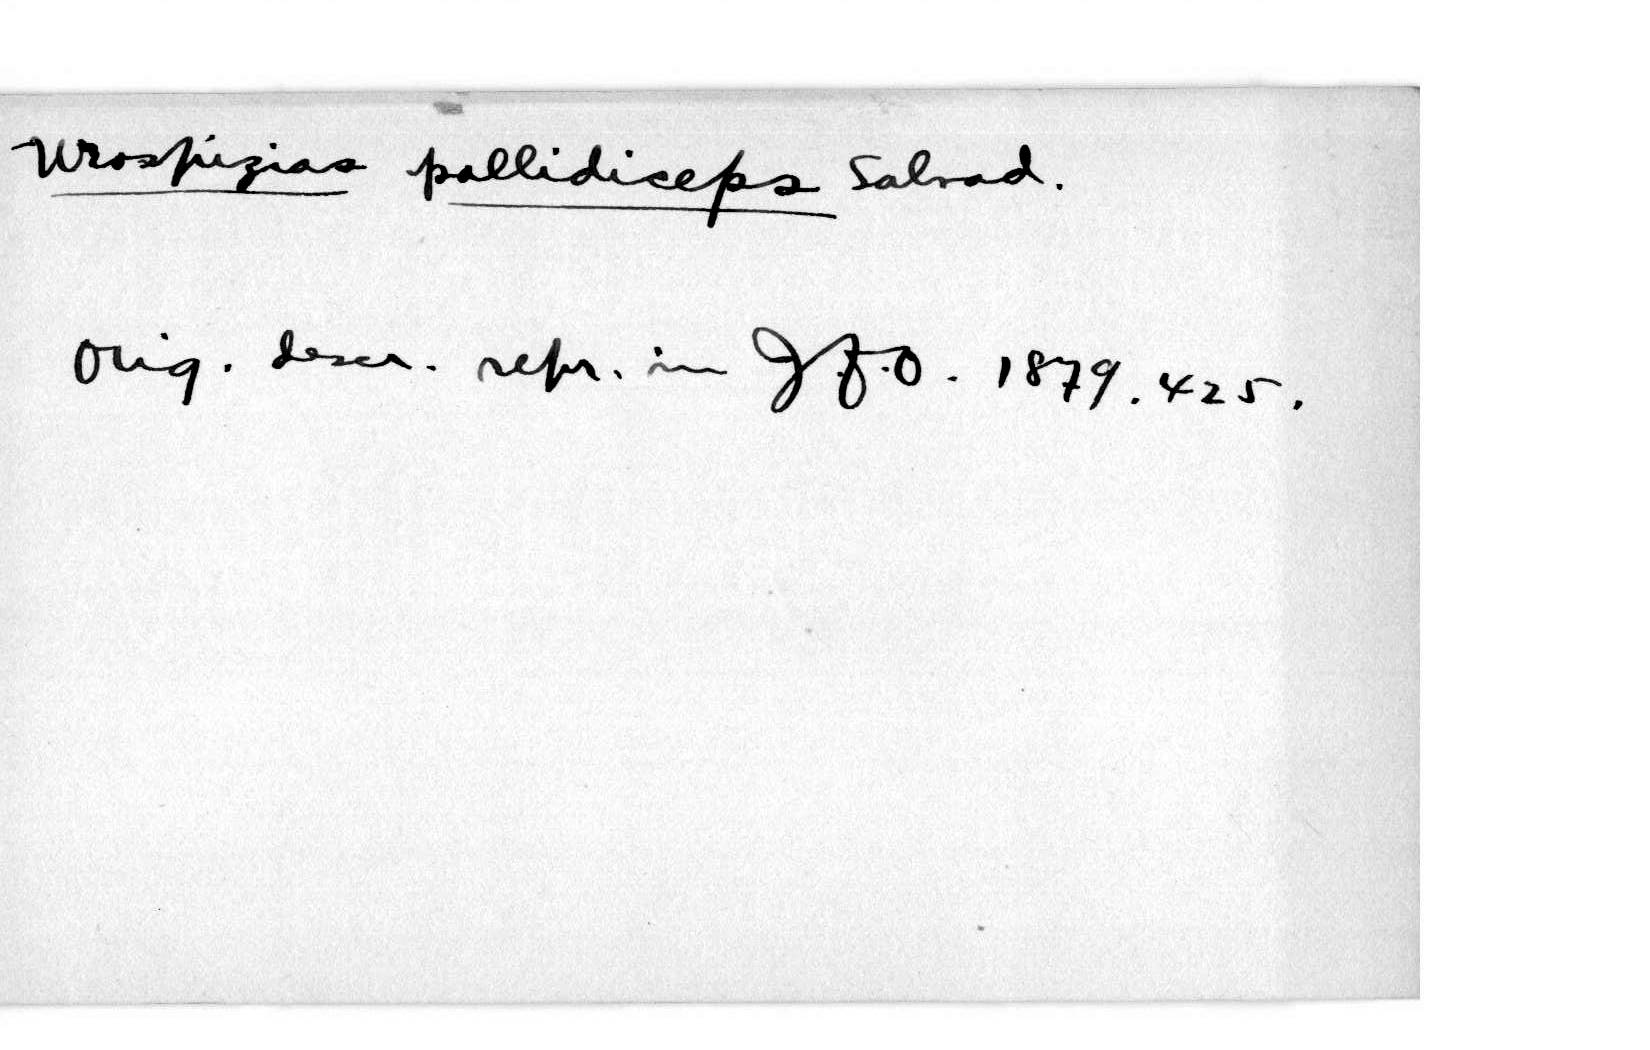 Urospizias pallidiceps Salvad.
Orig. descr. repr. in J.f.O. 1879.425.